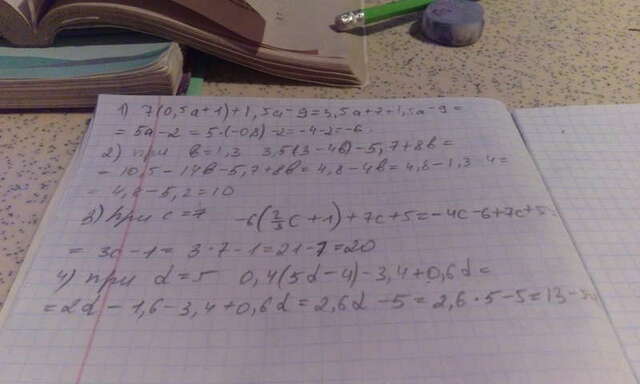 1) 7(0,5a+1)+1,5a-9=3,5a+7+1,5a-9=
=5a-2=5·(-0,8)-2=-4-2=-6.
2) при в=1,3 3,5(3-4в)-5,7+8в=
=10,5-14в-5,7+8в=4,8-4в=4,8-1,3·4=
=4,8-5,2=10
3) при c=7 -6(2/3c+1)+7c+5=-4c-6+7c+5=
=3c-1=3·7-1=21-1=20
4) при d=5 0,4(5d-4)-3,4+0,6d=
=2d-1,6-3,4+0,6d=2,6d-5=2,6·5-5=13-5